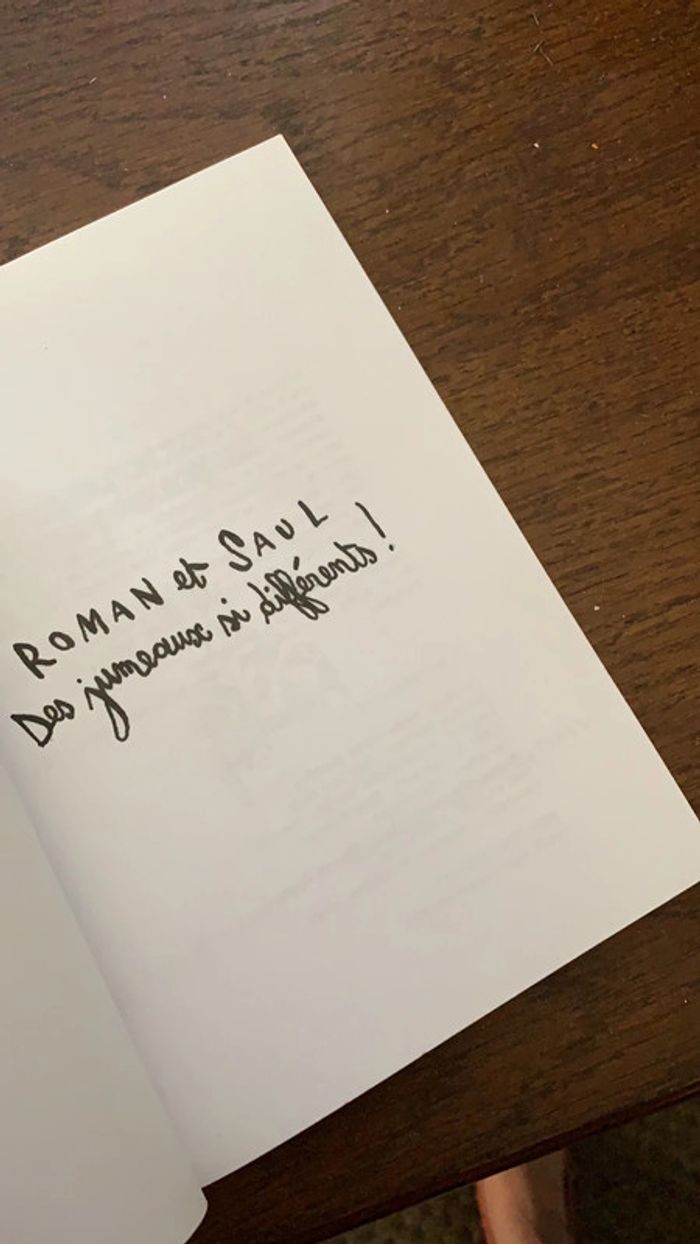 ROMAN et SAUL
Des jumeaux si différents !